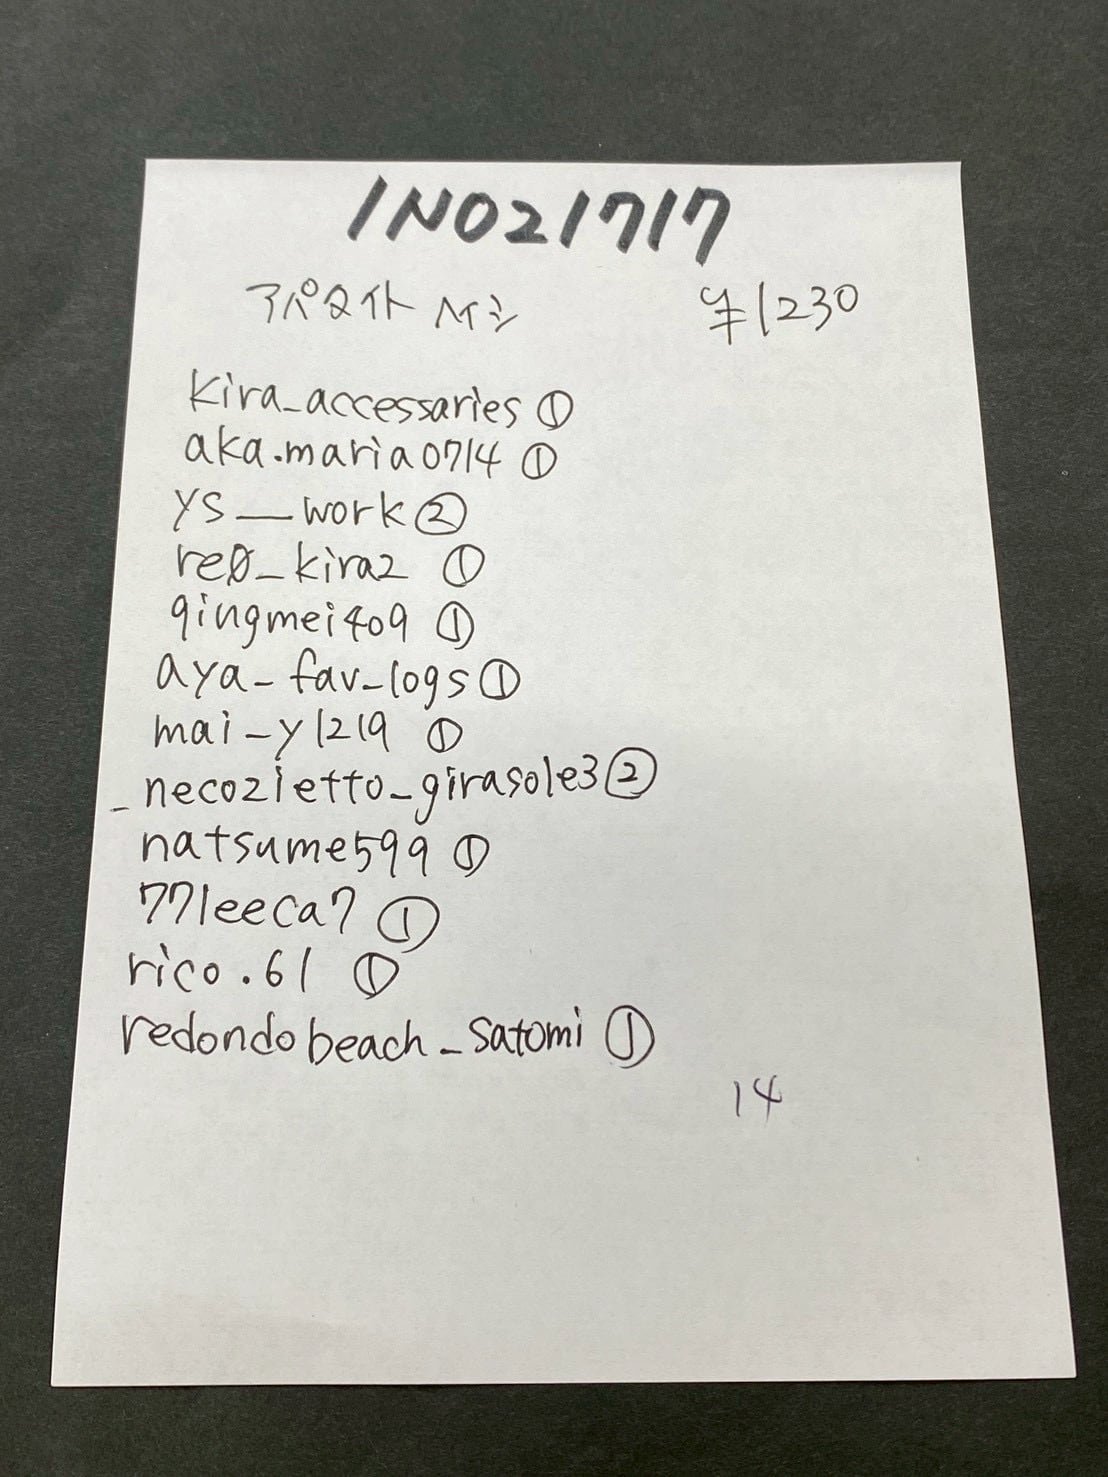 INO21717
アパタイト ヘイシ ¥1230
kira_accessaries ①
aka.maria0714 ①
ys__work ②
re0_kira2 ①
qingmei409 ①
aya_fav_logs ①
mai_y1219 ①
_necozietto_girasole3 ②
natsume599 ①
771eeca7 ①
rico.61 ①
redondobeach_satomi ①
14